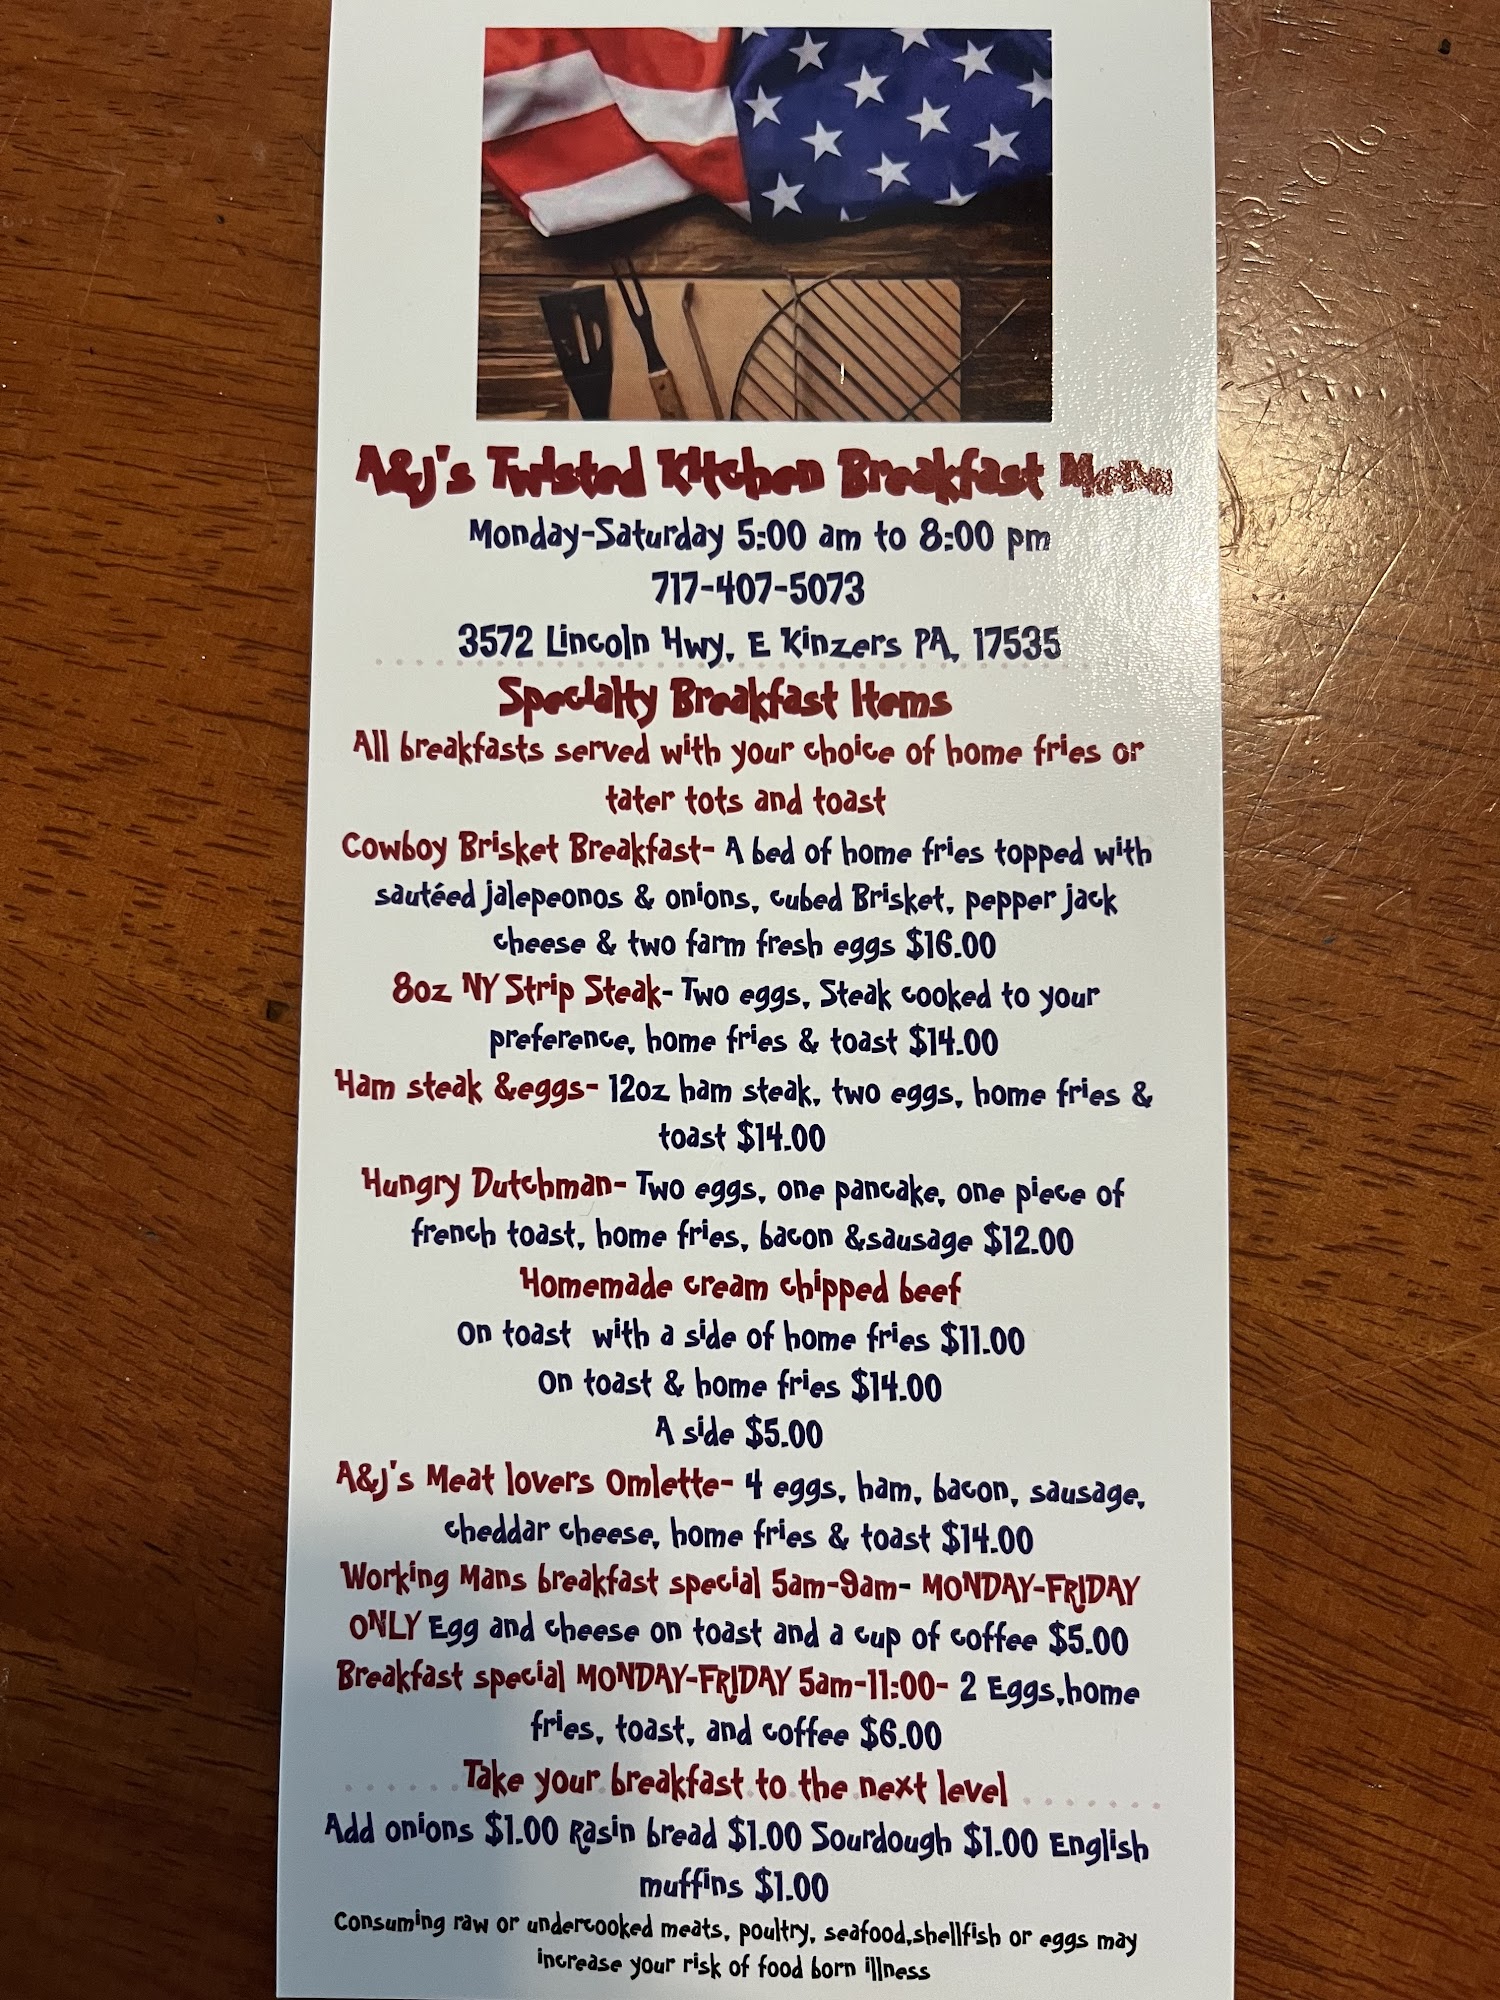 A&J's Twisted Kitchen Breakfast Menu
Monday-Saturday 5:00 am to 8:00 pm
717-407-5073
3572 Lincoln Hwy, E Kinzers PA, 17535
Specialty Breakfast Items
All breakfasts served with your choice of home fries or
tater tots and toast
Cowboy Brisket Breakfast- A bed of home fries topped with
sautéed jalepeonos & onions, cubed Brisket, pepper jack
cheese & two farm fresh eggs $16.00
8oz NY Strip Steak- Two eggs, Steak cooked to your
preference, home fries & toast $14.00
Ham steak &eggs- 12oz ham steak, two eggs, home fries &
toast $14.00
Hungry Dutchman- Two eggs, one pancake, one piece of
french toast, home fries, bacon &sausage $12.00
Homemade cream chipped beef
On toast with a side of home fries $11.00
On toast & home fries $14.00
A side $5.00
A&J's Meat lovers Omlette- 4 eggs, ham, bacon, sausage,
cheddar cheese, home fries & toast $14.00
Working Mans breakfast special 5am-9am- MONDAY-FRIDAY
ONLY Egg and cheese on toast and a cup of coffee $5.00
Breakfast special MONDAY-FRIDAY 5am-11:00- 2 Eggs,home
fries, toast, and coffee $6.00
Take your breakfast to the next level
Add onions $1.00 Rasin bread $1.00 Sourdough $1.00 English
muffins $1.00
Consuming raw or undercooked meats, poultry, seafood,shellfish or eggs may
increase your risk of food born illness